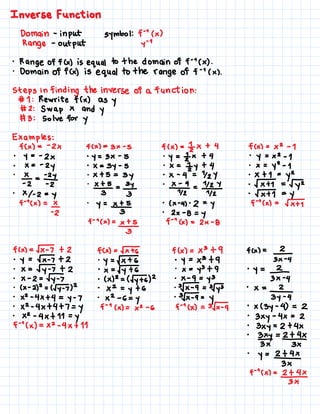 Inverse Function
Domain - input symbol: f⁻¹(x)
Range - output y⁻¹
• Range of f(x) is equal to the domain of f⁻¹(x).
• Domain of f(x) is equal to the range of f⁻¹(x).
Steps in finding the inverse of a function:
#1: Rewrite f(x) as y
#2: Swap x and y
#3: Solve for y
Examples:
f(x) = -2x
• y = -2x
• x = -2y
• x/-2 = -2y/-2
• x/-2 = y
f⁻¹(x) = x/-2
f(x) = 3x-5
• y = 3x-5
• x = 3y-5
• x+5 = 3y
• x+5/3 = 3y/3
• y = x+5/3
f⁻¹(x) = x+5/3
f(x) = 1/2 x + 4
• y = 1/2 x + 4
• x = 1/2 y + 4
• x-4 = 1/2 y
• x-4/1/2 = 1/2 y/1/2
• (x-4)·2 = y
• 2x-8 = y
f⁻¹(x) = 2x-8
f(x) = x²-1
• y = x²-1
• x = y²-1
• x+1 = y²
• √x+1 = √y²
• √x+1 = y
f⁻¹(x) = √x+1
f(x) = √x-7 + 2
• y = √x-7 + 2
• x = √y-7 + 2
• x-2 = √y-7
• (x-2)² = (√y-7)²
• x²-4x+4 = y-7
• x²-4x+4+7 = y
• x²-4x+11 = y
f⁻¹(x) = x²-4x+11
f(x) = √x+6
• y = √x+6
• x = √y+6
• (x)² = (√y+6)²
• x² = y+6
• x²-6 = y
f⁻¹(x) = x²-6
f(x) = x³+9
• y = x³+9
• x = y³+9
• x-9 = y³
• ³√x-9 = ³√y³
• ³√x-9 = y
f⁻¹(x) = ³√x-9
f(x) = 2/3x-4
• y = 2/3x-4
• x = 2/3y-4
• x(3y-4) = 2
• 3xy-4x = 2
• 3xy = 2+4x
• 3xy/3x = 2+4x/3x
• y = 2+4x/3x
f⁻¹(x) = 2+4x/3x